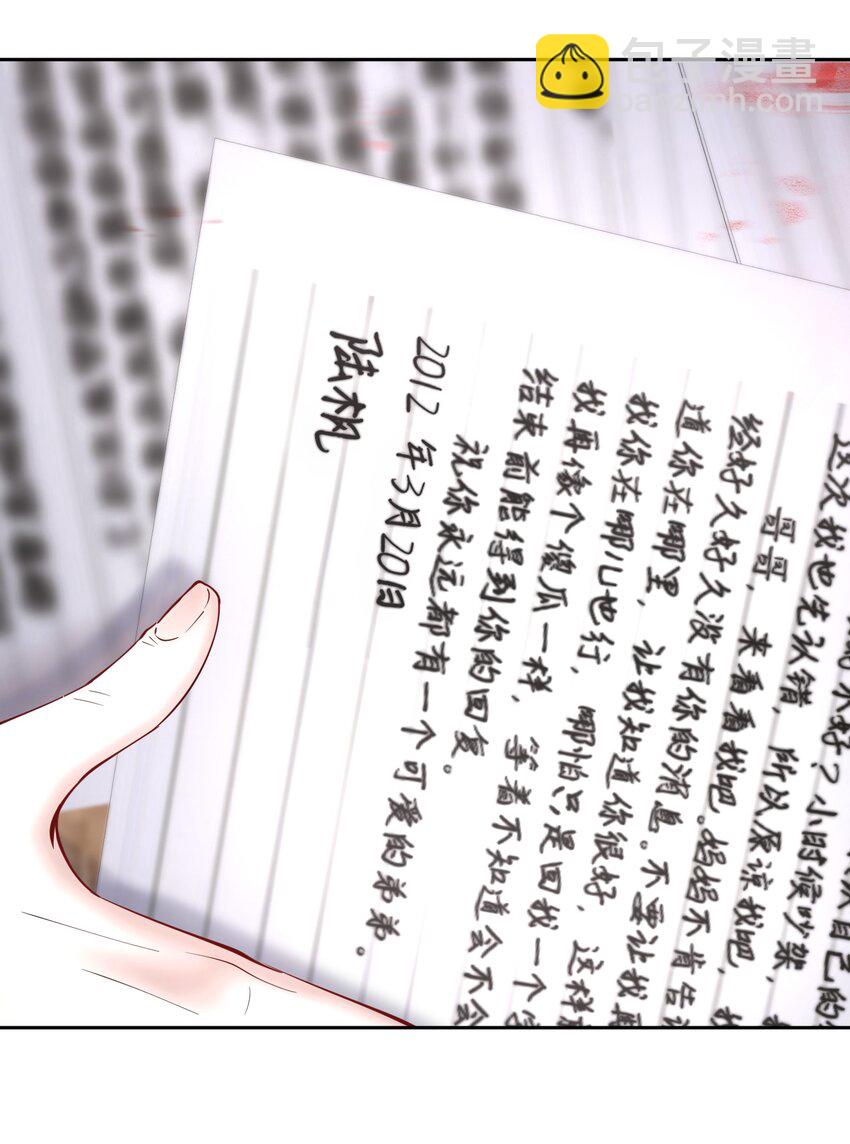 自己的
不好？小时候吵架，
这次我也先认错，所以原谅我吧，我
哥哥，来看看我吧。妈妈不肯告
经好久好久没有你的消息。不要让我再
道你在哪里，让我知道你很好，这样
我你在哪儿也行，哪怕只是回我一个
我再像个傻瓜一样，等着不知道会不会
结束前能得到你的回复。
祝你永远都有一个可爱的弟弟。
2012年3月20日
陆枫
包子漫畫
baozimh.com